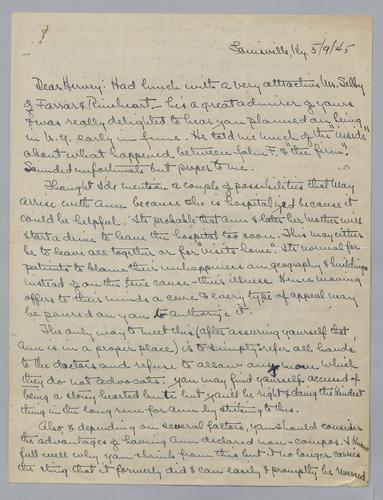 Louisville, Ky. 5/9/45
Dear Hervey: Had lunch with a very attractive Mr. Selby
of Farrar & Rinehart - he's a great admirer of yours
& was really delighted to hear you planned on being
in N.Y. early in June. He told me much of the "inside"
about what happened between John F. & "the firm".
Sounded unfortunate but proper to me.
Thought I'd mention a couple of possibilities that may
arise with Ann because she is hospitalized because it
could be helpful. It's probable that Ann & later her mother will
start a drive to leave the hospital too soon. This may either
be to leave all together or for "visits home". It's normal for
patients to blame their unhappiness on geography & buildings
instead of on the true cause - their illness. Hence moving
offers to their minds a cure & every type of appeal may
be poured on you to authorize it.
The only way to meet this (after assuring yourself that
Ann is in a proper place) is to simply refer all hands
to the doctors and refuse to allow any move which
they do not advocate. You may find yourself accused of
being a stony hearted brute but you'll be right & doing the kindest
thing in the long run for Ann by sticking to this.
Also, & depending on several factors, you should consider
the advantages of having Ann declared non-compos. I know
full well why you shrink from this but it no longer carries
the sting that it formerly did & can easily & promptly be reversed